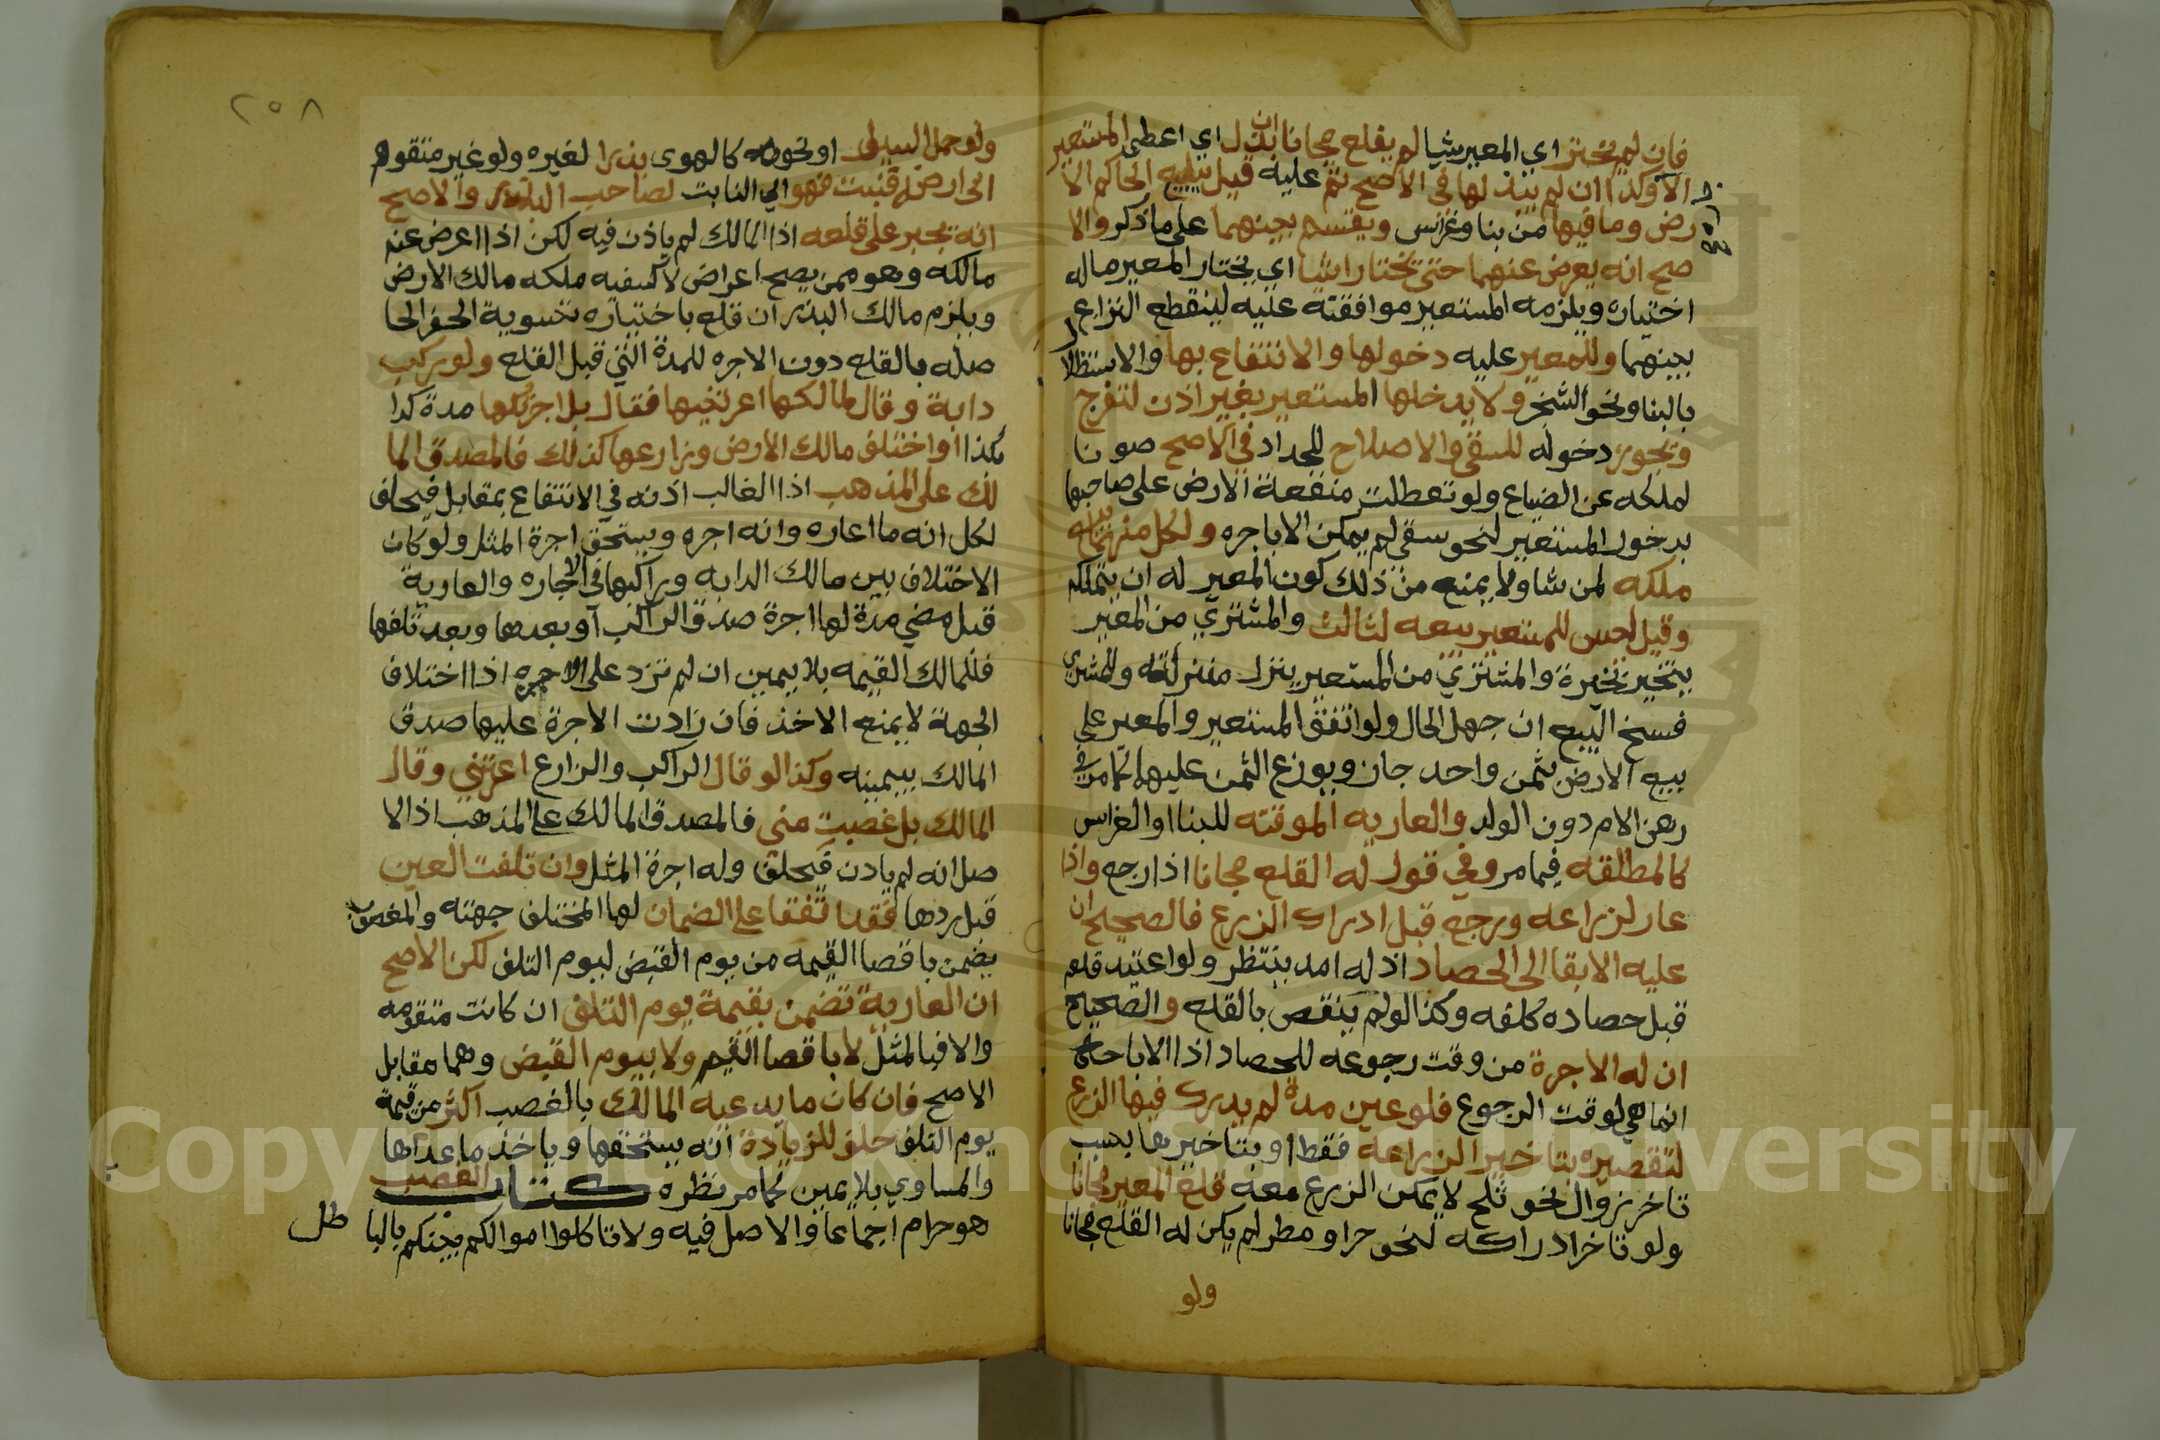 فان لم يختر اي المعير شيا لم يقلع مجانا ان بذل اي اعطى المستعير
الاجرة وكذا ان لم يبذلها في الاصح ثم عليه قيل يبيع الحاكم الا
رض وما فيها من بنا وغراس ويقسم بينهما على ما ذكر والا
صح انه يعرض عنهما حتى يختارا شيا اي يختار المعير ماله
اختياره ويلزمه المستعير موافقته عليه لينقطع النزاع
بينهما وللمعير عليه دخولها والانتفاع بها والاستظلال
بالبنا ونحو الشجر ولا يدخلها المستعير بغير اذن لتفرج
ويجوز دخوله للسقي والاصلاح للجداد في الاصح صونا
لملكه عن الضياع ولو تعطلت منفعة الارض على صاحبها
بدخول المستعير لنحو سقي لم يمكن الا باجره ولكل منهما بيع
ملكه لمن شا ولا يمنع من ذلك كون المعير له ان يتملكه
وقيل ليس للمستعير بيعه لثالث والمشتري من المعير
يتخير تخيره والمشتري من المستعير ينزل منزلته وللمشتري
فسخ البيع ان جهل الحال ولو اتفق المستعير والمعير على
بيع الارض بثمن واحد جاز ويوزع الثمن عليهما كما مر في
رهن الام دون الولد والعاريه الموقته للبنا او الغراس
كالمطلقه فيما مر وفي قول له القلع مجانا اذا رجع واذا
عار لزراعه ورجع قبل ادراك الزرع فالصحيح ان
عليه الابقا الى الحصاد اذ له امد ينتظر ولو اعتيد قلعه
قبل حصاده كلفه وكذا لو لم ينقص بالقلع والصحيح
ان له الاجرة من وقت رجوعه للحصاد اذ الاباحة
انما هي لوقت الرجوع فلو عين مدة لم يدرك فيها الزرع
لتقصيره بتاخير الزراعه فقط او بتاخيرها بسبب
تاخر زوال نحو ثلج لا يمكن الزرع معه قلع المعير مجانا
ولو تاخر ادراكه لنحو حر او مطر لم يكن له القلع مجانا
ولو
٢٥٨
ولو حمل السيل او نحوه كالهوى بذرا لغيره ولو غير متقوم
الى ارض له فنبت فهو اي النابت لصاحب البذر والاصح
انه يجبر على قلعه اذ المالك لم ياذن فيه لكن اذا اعرض عنه
مالكه وهو ممن يصح اعراض لا كسفيه ملكه مالك الارض
ويلزم مالك البذر ان قلع باختياره تسوية الحفر الحا
صله بالقلع دون الاجره للمدة التي قبل القلع ولو ركب
دابة وقال لمالكها اعرتنيها فقال بل اجرتكها مدة كذا
بكذا او اختلف مالك الارض وزارعها كذلك فالمصدق الما
لك على المذهب اذ الغالب اذنه في الانتفاع بمقابل فيحلف
لكل انه ما اعاره وانه اجره ويستحق اجرة المثل ولو كان
الاختلاف بين مالك الدابه وراكبها في الاجاره والعارية
قبل مضي مدة لها اجرة صدق الراكب او بعدها وبعد تلفها
فللمالك القيمه بلا يمين ان لم تزد على الاجره اذ اختلاف
الجهة لا يمنع الاخذ فان زادت الاجرة عليها صدق
المالك بيمينه وكذا لو قال الراكب والزارع اعرتني وقال
المالك بل غصبت مني فالمصدق المالك على المذهب اذ الا
صل انه لم ياذن فيحلف وله اجرة المثل وان تلفت العين
قبل ردها فقد اتفقا على الضمان لها المختلف جهته والمغصوب
يضمن باقصا القيمه من يوم القبض ليوم التلف لكن الاصح
ان العارية تضمن بقيمة يوم التلف ان كانت متقومه
والا فبالمثل لا باقصا القيم ولا بيوم القبض وهما مقابل
الاصح فان كان ما يدعيه المالك بالغصب اكثر من قيمة
يوم التلف حلف للزيادة انه يستحقها وياخذ ما عداها
والمساوي بلا يمين كما مر نظره كتاب الغصب
هو حرام اجماعا والاصل فيه ولا تاكلوا اموالكم بينكم بالبا
طل